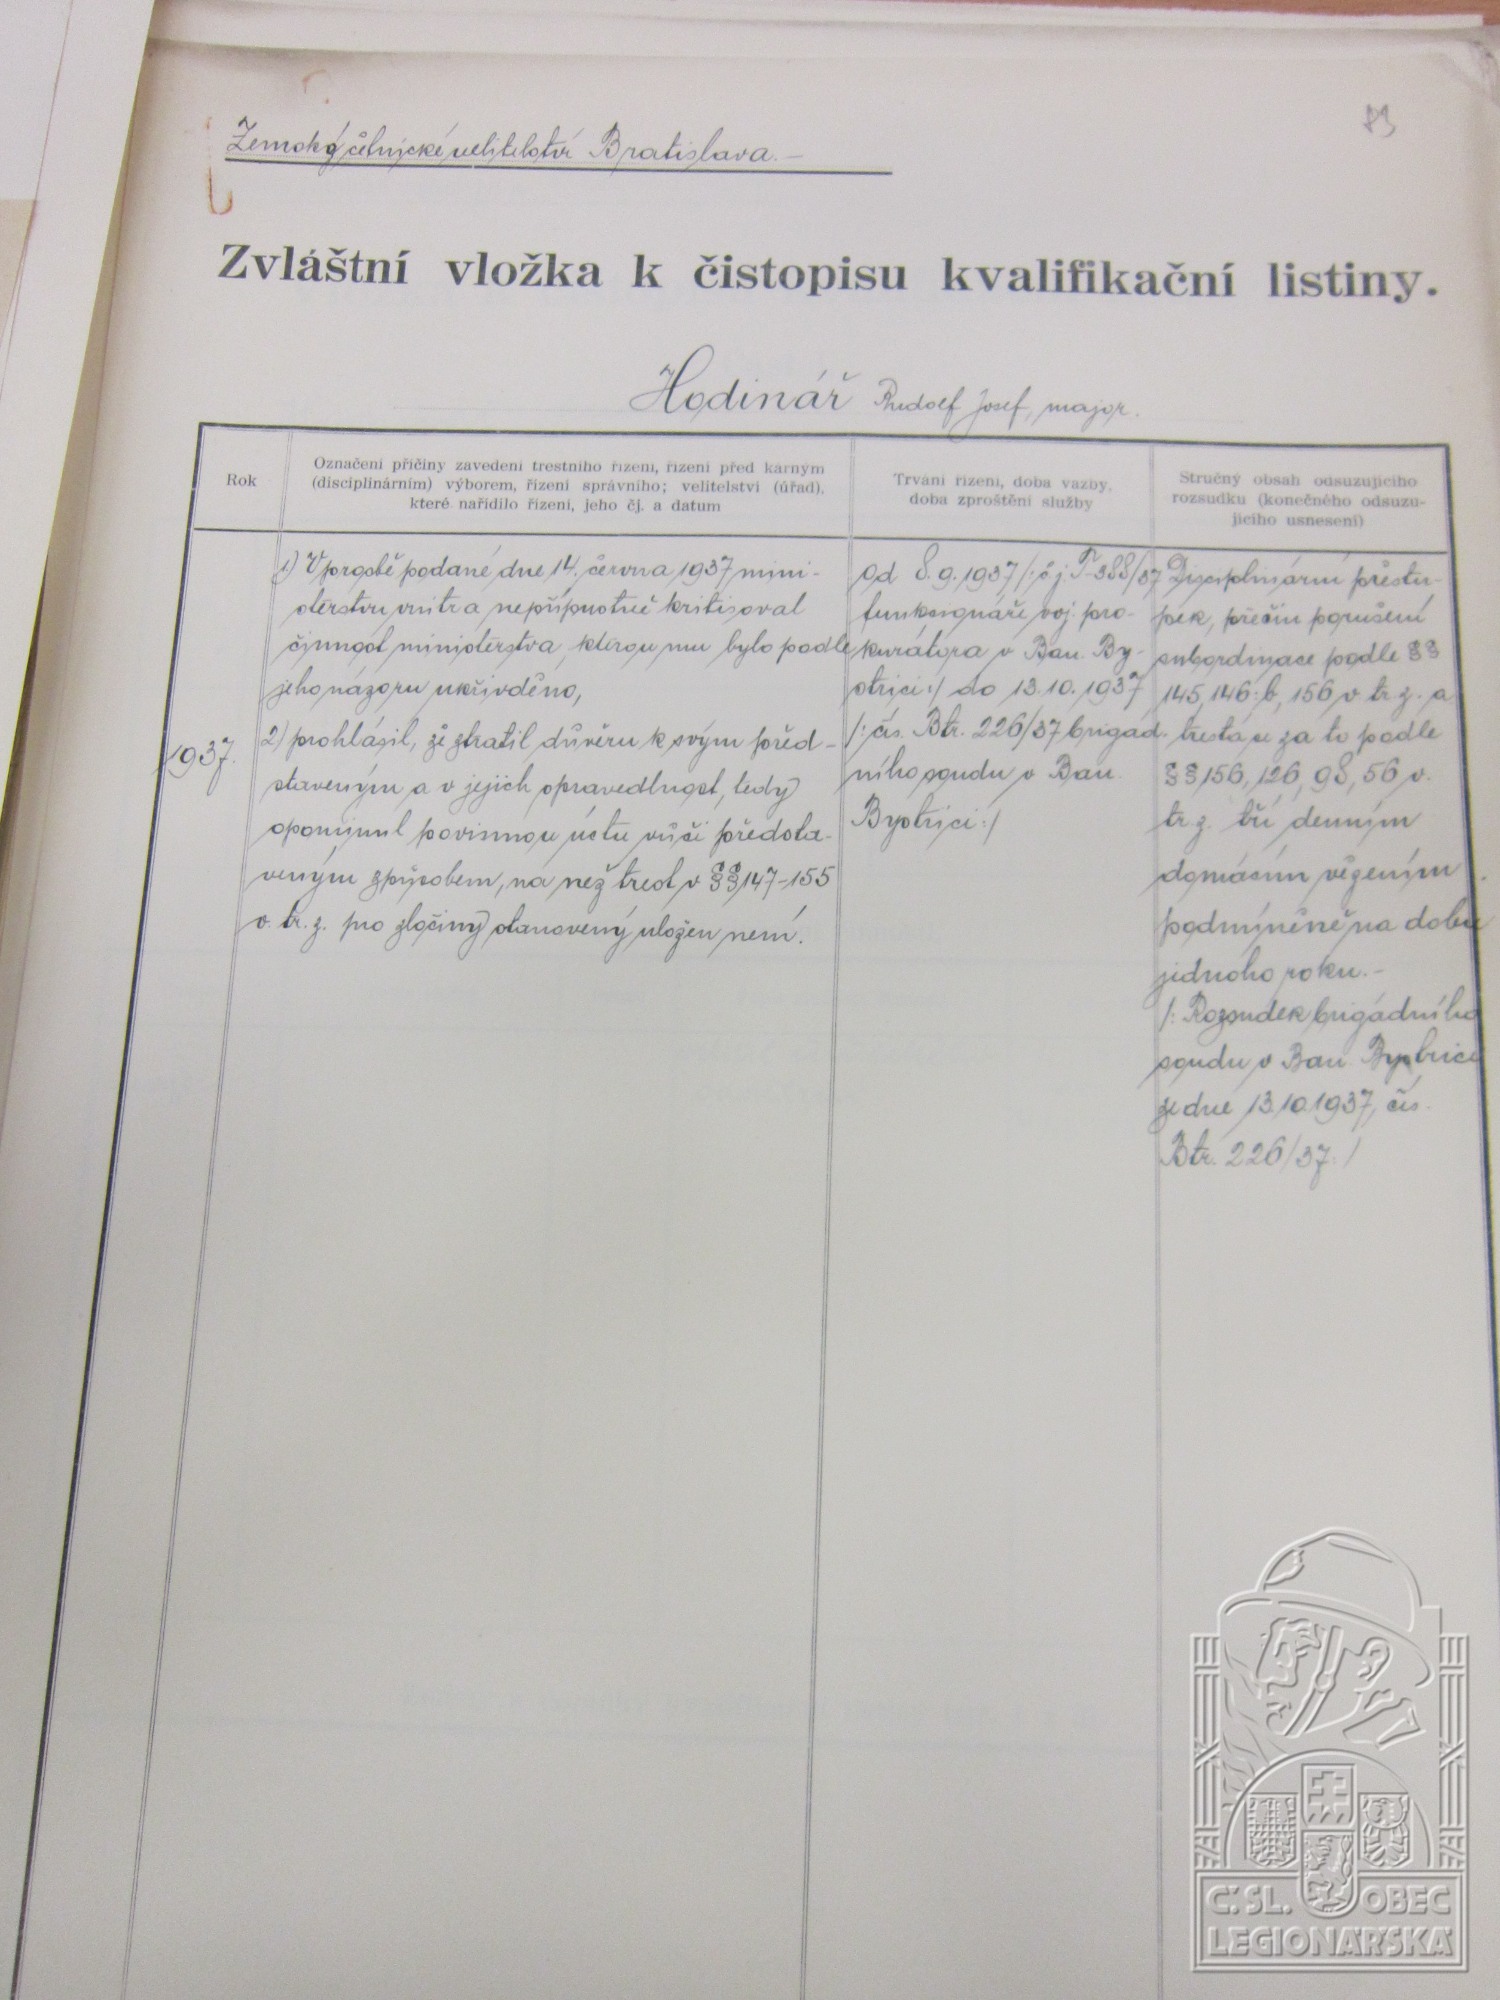 83
Zemské četnické velitelství Bratislava.-
Zvláštní vložka k čistopisu kvalifikační listiny.
Hodinář Rudolf Josef, major.
Rok
Označení příčiny zavedení trestního řízení, řízení před kárným
(disciplinárním) výborem, řízení správního; velitelství (úřad),
které nařídilo řízení, jeho čj. a datum
Trvání řízení, doba vazby,
doba zproštění služby
Stručný obsah odsuzujícího
rozsudku (konečného odsuzu-
jícího usnesení)
1937.
1) V prosbě podané dne 14. června 1937 mini-
sterstvu vnitra nepřípustně kritisoval
činnost ministerstva, kterou mu bylo podle
jeho názoru ukřivděno,
2) prohlásil, že ztratil důvěru k svým před-
staveným a v jejich spravedlnost, tedy
opominul povinnou úctu vůči předsta-
veným způsobem, na než trest v §§ 147-155
v. tr. z. pro zločiny stanovený uložen není.
Od 8.9.1937 /: čj. T-388/37
funkcionáře voj. pro-
kurátora v Ban. By-
strici :/ do 13.10.1937
/: čís. Btr. 226/37 brigád-
ního soudu v Ban.
Bystrici :/
Disciplinární přestu-
pek, přečin porušení
subordinace podle §§
145, 146:b, 156 v. tr. z. a
trestá se za to podle
§§ 156, 126, 98, 56 v.
tr. z. tří denním
domácím vězením
podmíněně na dobu
jednoho roku.-
/: Rozsudek brigádního
soudu v Ban. Bystrici
ze dne 13.10.1937, čís.
Btr. 226/37. :/
Č.SL. OBEC
LEGIONÁŘSKÁ